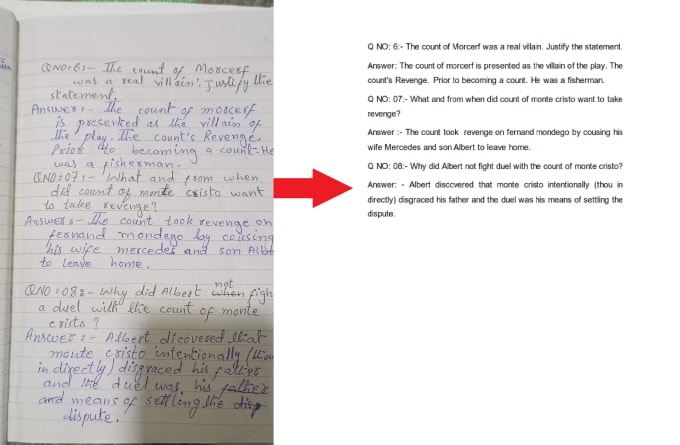 QNO:6:- The count of Morcerf
was a real villain'. Justify the
statement.
Answer:- The count of morcerf
is presented as the villain of
the play. The count's Revenge.
Prior to becoming a count. He
was a fisherman.
QNO:07:- What and from when
did count of monte cristo want
to take revenge?
Answer:- The count took revenge on
fernand mondego by cousing
his wife mercedes and son Albe
to leave home.
QNO:08:- Why did Albert not when figh
a duel with the count of monte
cristo?
Answer:- Albert dicovered that
monte cristo intentionally (thou
in directly) disgraced his father
and the duel was his father
and means of settling the disp
dispute.
Q NO: 6:- The count of Morcerf was a real villain. Justify the statement.
Answer: The count of morcerf is presented as the villain of the play. The
count's Revenge. Prior to becoming a count. He was a fisherman.
Q NO: 07:- What and from when did count of monte cristo want to take
revenge?
Answer :- The count took revenge on fernand mondego by cousing his
wife Mercedes and son Albert to leave home.
Q NO: 08:- Why did Albert not fight duel with the count of monte cristo?
Answer: - Albert disccvered that monte cristo intentionally (thou in
directly) disgraced his father and the duel was his means of settling the
dispute.